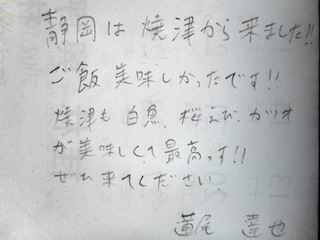 静岡は焼津から来ました!!
ご飯美味しかったです!!
焼津も白魚、桜えび、カツオ
が美味しくて最高っす!!
ぜひ来てください
道尾 達也